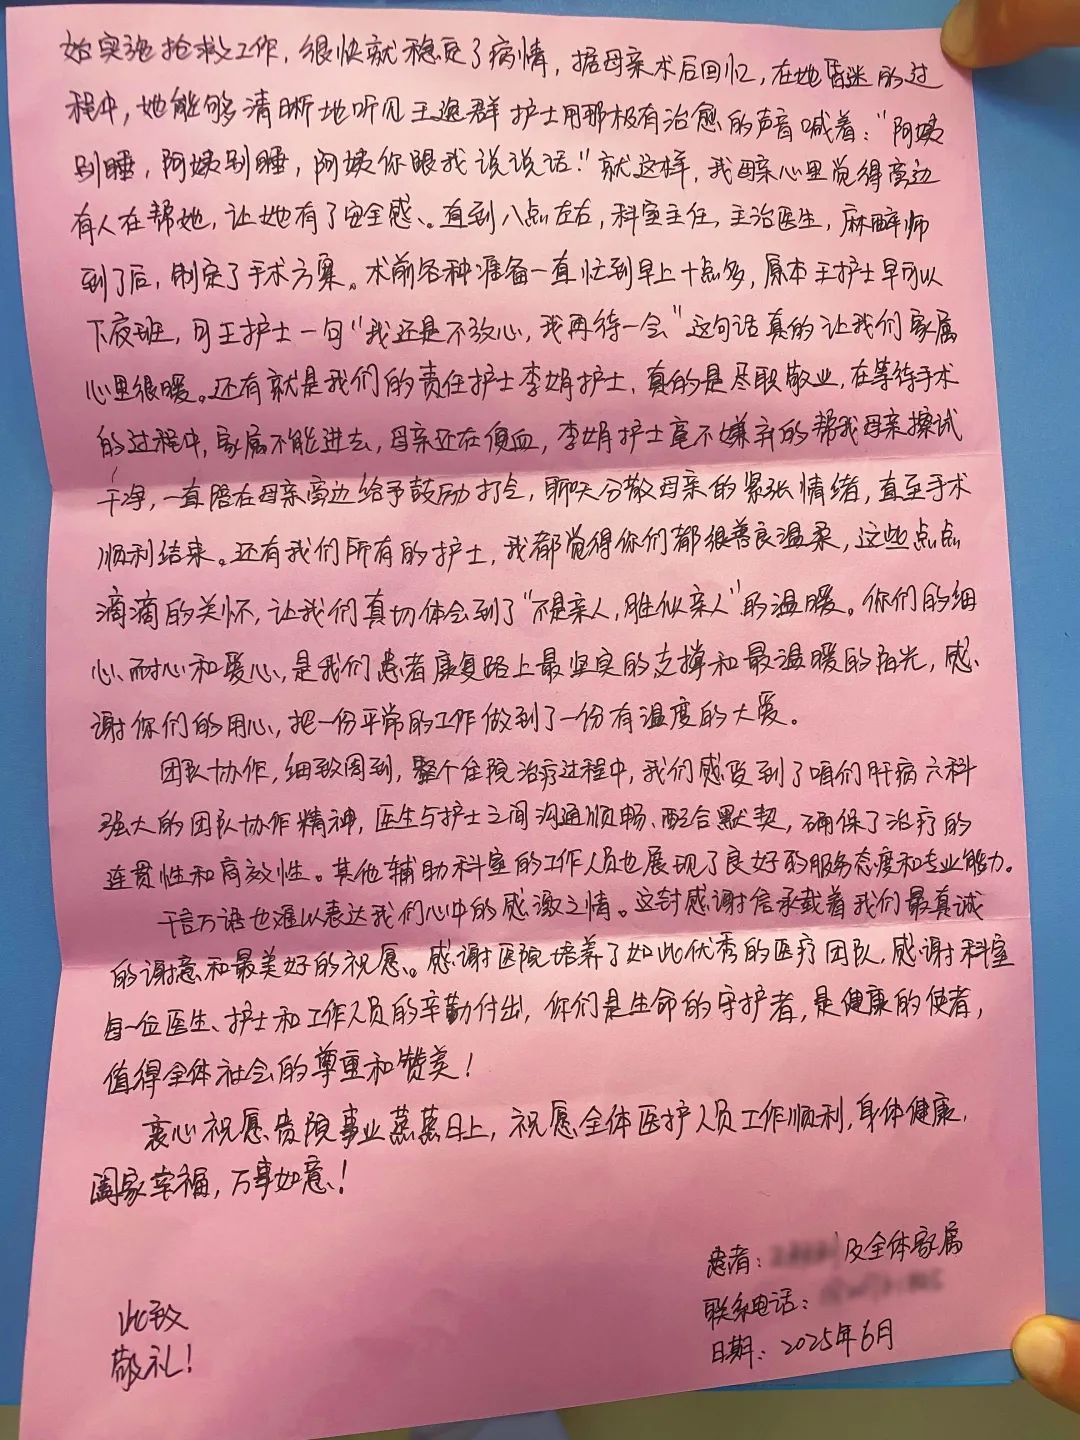 始实施抢救工作，很快就稳定了病情，据母亲术后回忆，在她昏迷的过
程中，她能够清晰地听见王逸群护士用那极有治愈的声音喊着：“阿姨
别睡，阿姨别睡，阿姨你跟我说说话！”就这样，我母亲心里觉得旁边
有人在帮她，让她有了安全感、直到八点左右，科室主任，主治医生，麻醉师
到了后，制定了手术方案。术前各种准备一直忙到早上十点多，原本王护士早可以
下夜班，可王护士一句“我还是不放心，我再待一会”这句话真的让我们家属
心里很暖。还有就是我们的责任护士李娟护士，真的是尽职敬业，在等待手术
的过程中，家属不能进去，母亲还在便血，李娟护士毫不嫌弃的帮我母亲擦试
干净，一直陪在母亲旁边给予鼓励打气，聊天分散母亲的紧张情绪，直至手术
顺利结束。还有我们所有的护士，我都觉得你们都很善良温柔，这些点点
滴滴的关怀，让我们真切体会到了“不是亲人，胜似亲人”的温暖。你们的细
心、耐心和爱心，是我们患者康复路上最坚实的支撑和最温暖的阳光，感
谢你们的用心，把一份平常的工作做到了一份有温度的大爱。
团队协作，细致周到，整个住院治疗过程中，我们感受到了咱们肝病六科
强大的团队协作精神，医生与护士之间沟通顺畅、配合默契，确保了治疗的
连贯性和高效性。其他辅助科室的工作人员也展现了良好的服务态度和专业能力。
千言万语也难以表达我们心中的感激之情。这封感谢信承载着我们最真诚
的谢意和最美好的祝愿。感谢医院培养了如此优秀的医疗团队，感谢科室
每一位医生、护士和工作人员的辛勤付出，你们是生命的守护者，是健康的使者，
值得全体社会的尊重和赞美！
衷心祝愿贵院事业蒸蒸日上，祝愿全体医护人员工作顺利，身体健康，
阖家幸福，万事如意！
患者：及全体家属
联系电话：
日期：2025年6月
此致
敬礼！